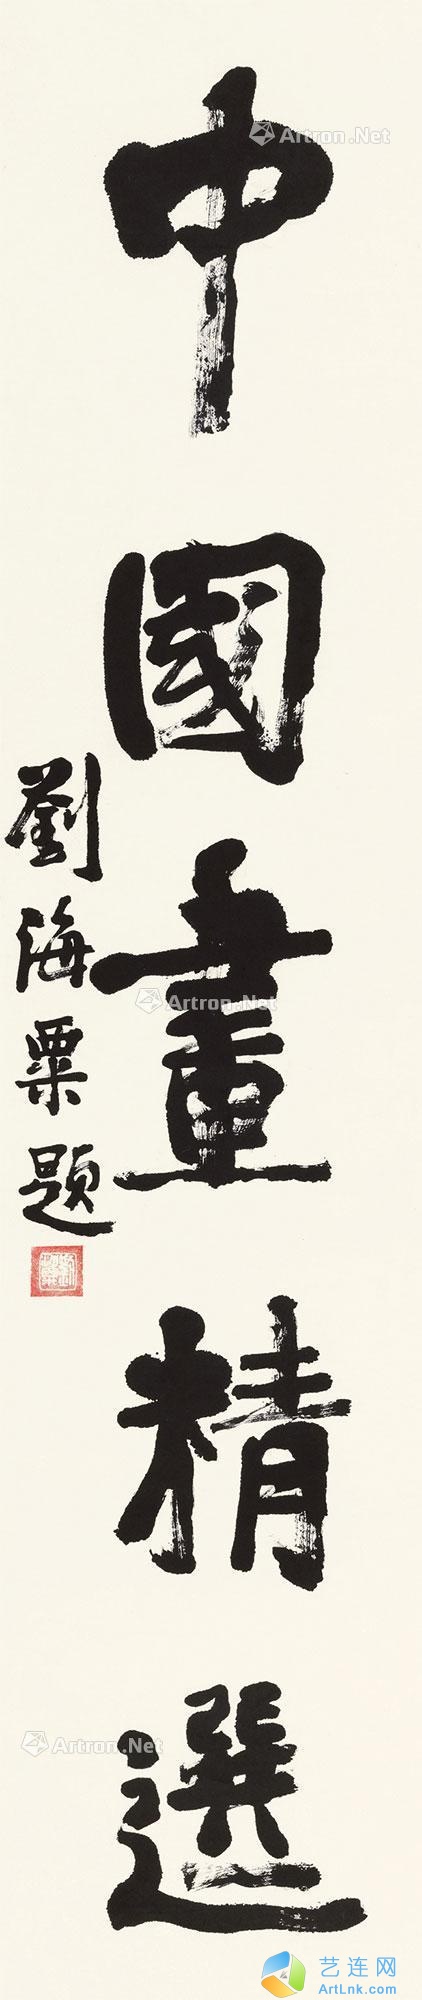 中國畫精選
劉海粟題
Artron.Net
Artron.Net
Artron.Net
艺连网
ArtLnk.com